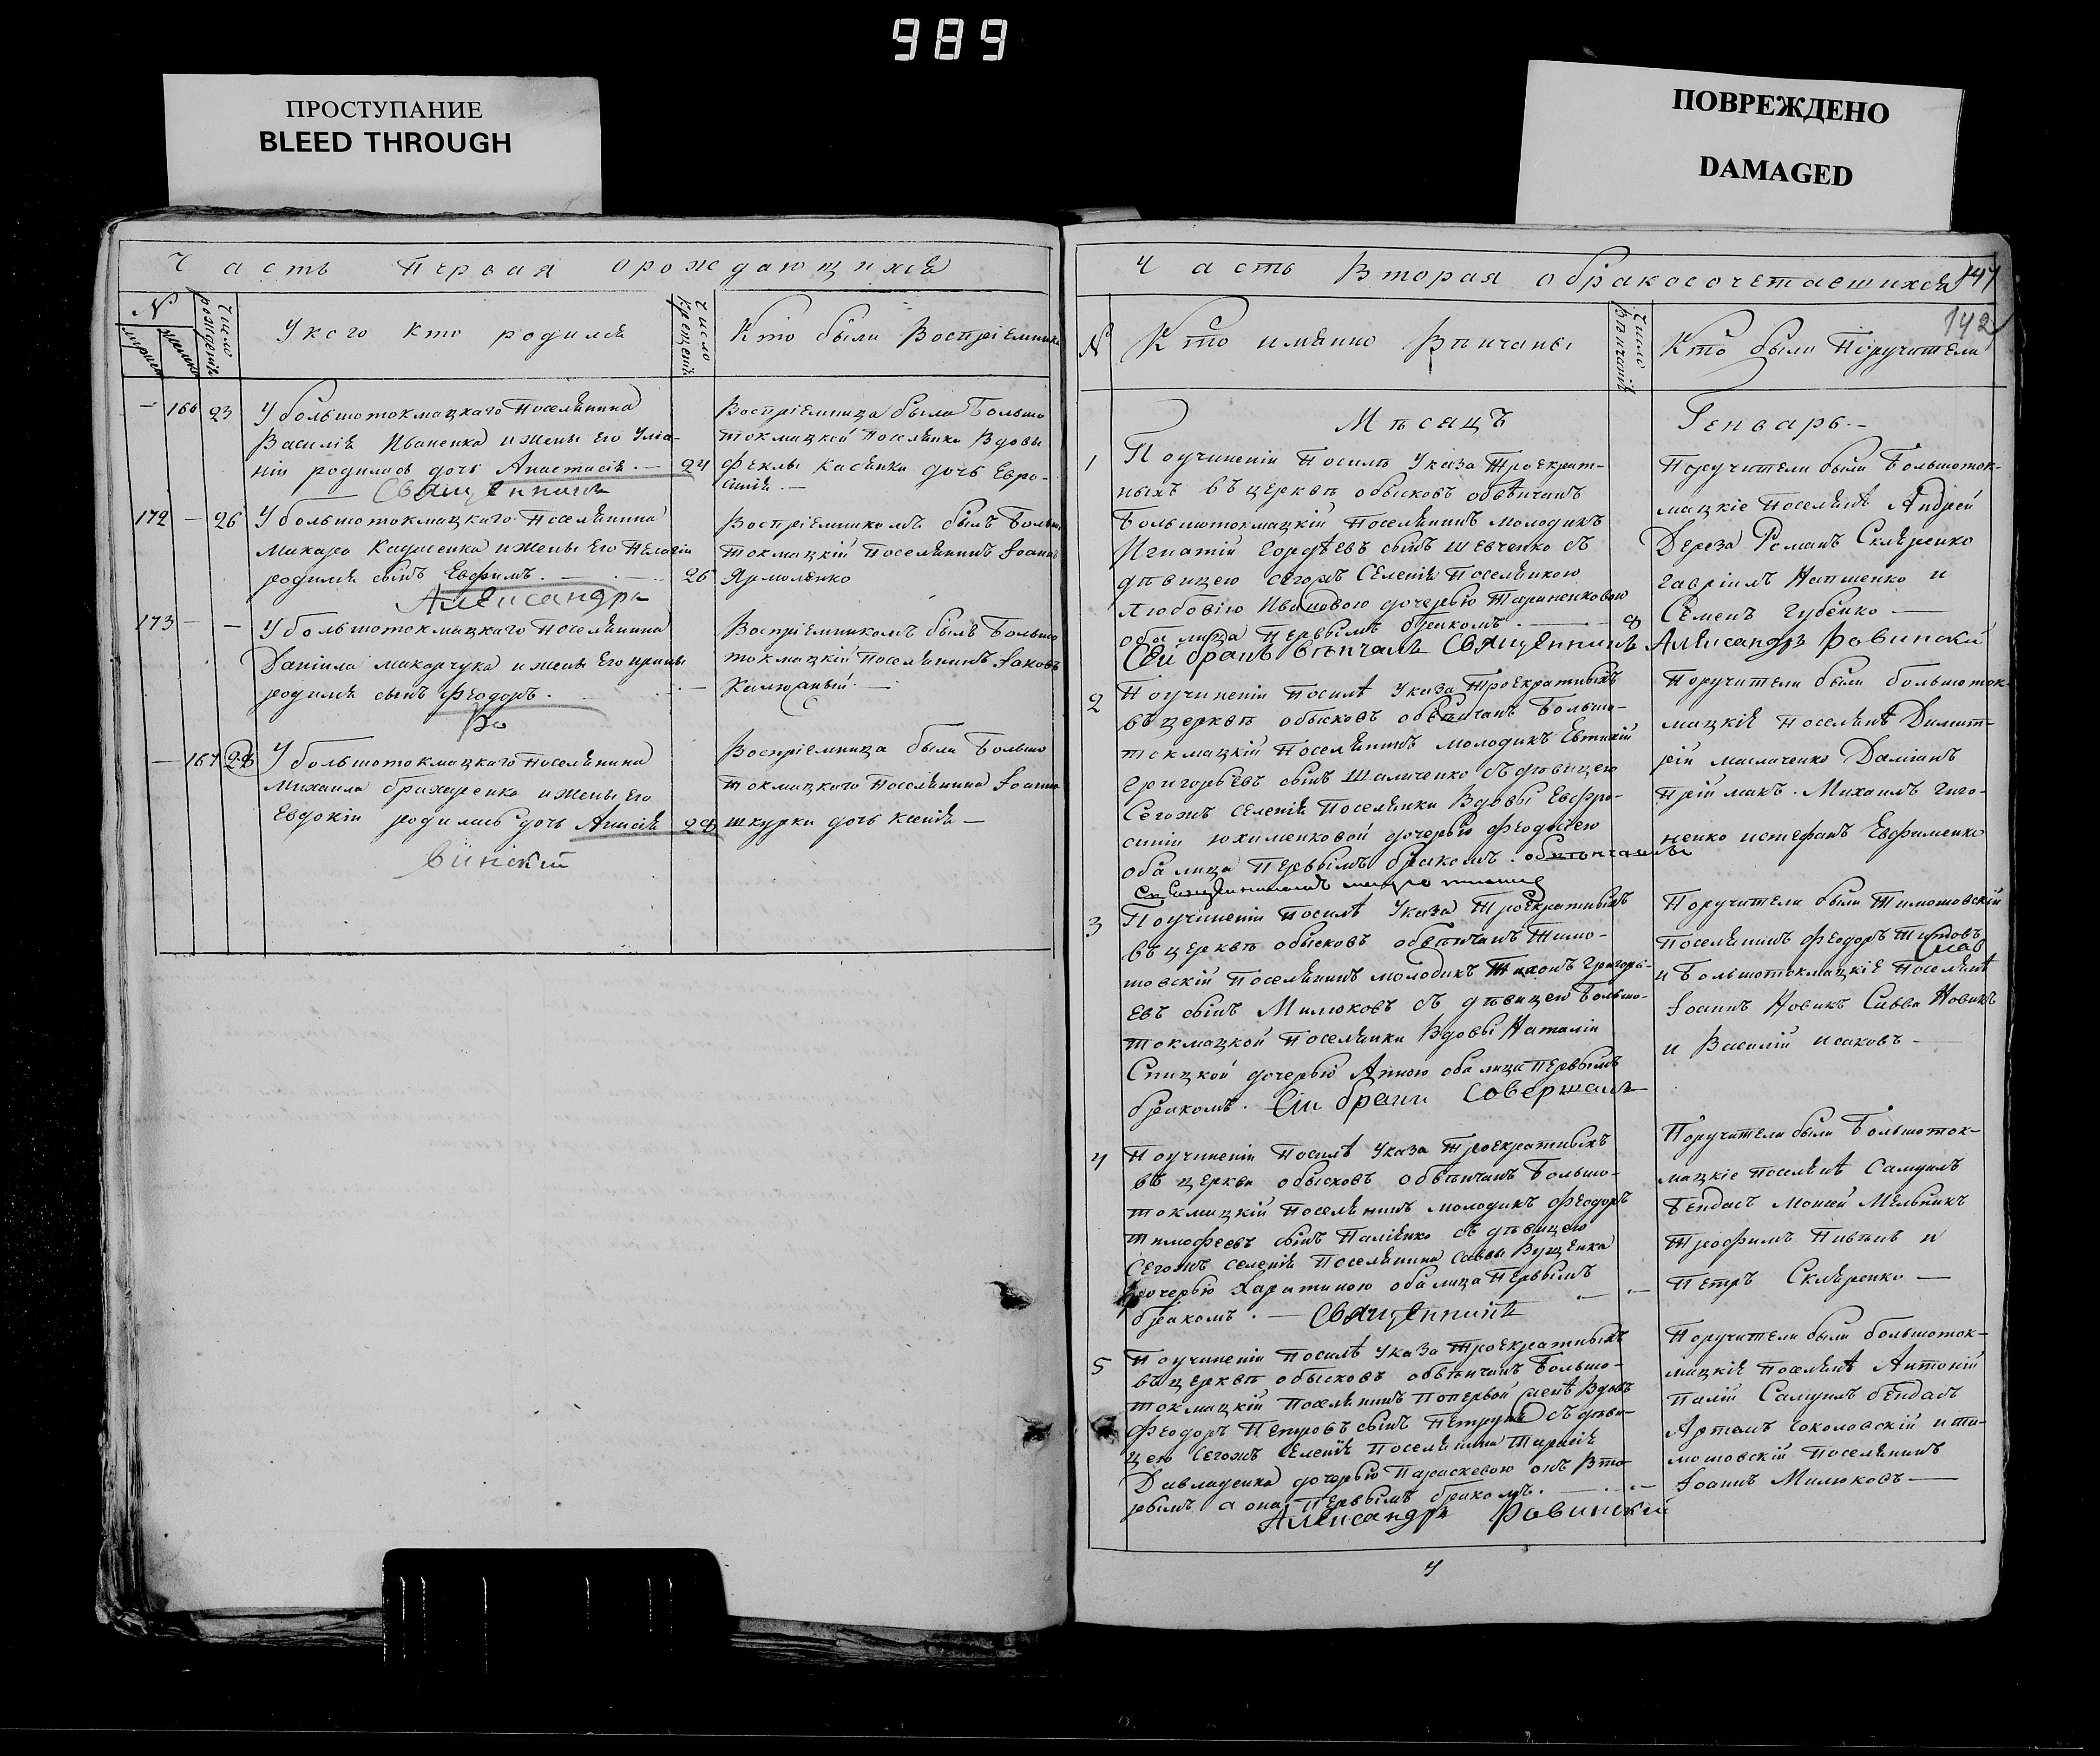 989
ПРОСТУПАНИЕ
BLEED THROUGH
ПОВРЕЖДЕНО
DAMAGED
Часть Первая ораждающихся
N
Число рождения
У кого кто родился
Число Крещения
Кто были Воспріемники
166 23 У большотокмацкаго Поселянина
Василія Иваненка и жены его Улiа-
ніи родилась дочь Анастасія. — 24
Священникъ
Воспріемница была Больше
токмацкой Поселянки Вдовы
Феклы дочь Евро-
синія. —
172 — 26 У большотокмацкаго Поселянина
Макара и жены Его Пелагіи
родился сынъ Евфимъ. — 26
Александръ
Воспріемникомъ былъ Больше
токмацкій Поселянинъ Іоаннъ
Ярмоленко
173 — — У большотокмацкаго Поселянина
Даніила Макарчука и жены Его Ирины
родился сынъ Феодоръ. —
Ро
Воспріемникомъ былъ Больше
токмацкій Поселянинъ Іаковъ
— 167 28 У большотокмацкаго Поселянина
Михаила и жены Его
Евдокіи родилась дочь Анисія 28
винскій
Воспріемница была Больше
токмацкаго Поселянина Іоанна
Шкурки дочь Ксенія —
Часть Вторая о бракосочетавшихся 141
142
N
Кто имянно Вѣнчаны
Число Вѣнчанія
Кто были Поручители
Мѣсяцъ Генварь. —
1 По учиненіи Посилѣ Указа Троекрат-
ныхъ въ церквѣ обысковъ обвѣнчанъ
Большотокмацкій Поселянинъ молодикъ
Игнатій Гордѣевъ сынъ Шевченко съ
дѣвицею сегожъ Селенія Поселянкою
Любовію Ивановою дочерью Тараненковою
оба лица Первымъ бракомъ. — 8
Сей бракъ вѣнчалъ Священникъ Александръ Ровинскій
Поручители были Большоток-
мацкіе Поселянѣ Андрей
Дереза Романъ Скляренко
Гавріилъ Напшенко и
Семенъ Губенко —
2 По учиненіи Посилѣ Указа Троекратныхъ
въ церквѣ обысковъ обвѣнчанъ Больше-
токмацкій Поселянинъ молодикъ Евтихій
Григорьевъ сынъ Шаличенко съ дѣвицею
Сегожъ Селенія Поселянки Вдовы Евфро-
синіи Юхименковой дочерью Феодосіею
оба лица Первымъ бракомъ.
Поручители были большоток-
мацкіе Поселянѣ Димит-
рій Масличенко Даміанъ
Пріймакъ. Михаилъ Гиго-
ненко и Стефанъ Евфименко
3 По учиненіи Посилѣ Указа Троекратныхъ
въ церквѣ обысковъ обвѣнчанъ Тимо-
шовскій Поселянинъ молодикъ Тихонъ Григорі-
евъ сынъ Милюковъ съ дѣвицею Больше-
токмацкой Поселянки Вдовы Наталіи
Спицкой дочерью Анною оба лица Первымъ
бракомъ. Сіи браки Совершалъ
Поручители были Тимошовскій
Поселянинъ Феодоръ Титовъ
и Большотокмацкіе Поселянѣ
Іоаннъ Новикъ Савва Новикъ
и Василій Исаковъ —
4 По учиненіи Посилѣ Указа Троекратныхъ
въ церкви обысковъ обвѣнчанъ Больше-
токмацкій Поселянинъ молодикъ Феодоръ
Тимофеевъ сынъ Паліенко съ дѣвицею
Сегожъ Селенія Поселянина Саввы Вуценка
дочерью Харитиною оба лица Первымъ
бракомъ. — Священникъ
Поручители были Большоток-
мацкіе Поселянѣ Самуилъ
Бендасъ Моисей Мельникъ
Трофимъ Пивень и
Петръ Скляренко —
5 По учиненіи Посилѣ Указа Троекратныхъ
въ церквѣ обысковъ обвѣнчанъ Больше-
токмацкій Поселянинъ По первой женѣ Вдовъ
Феодоръ Петровъ сынъ съ дѣви-
цею Сегожъ Селенія Поселянина Тарасія
Давладенка дочерью Параскевою онъ Вто-
рымъ а она Первымъ бракомъ. —
Александръ Ровинскій
Поручители были большоток-
мацкіе Поселянѣ Антоній
Палій Самуилъ Бендасъ
Артемъ Соколовскій и ти-
мошовскій Поселянинъ
Іоаннъ Милюковъ —
4